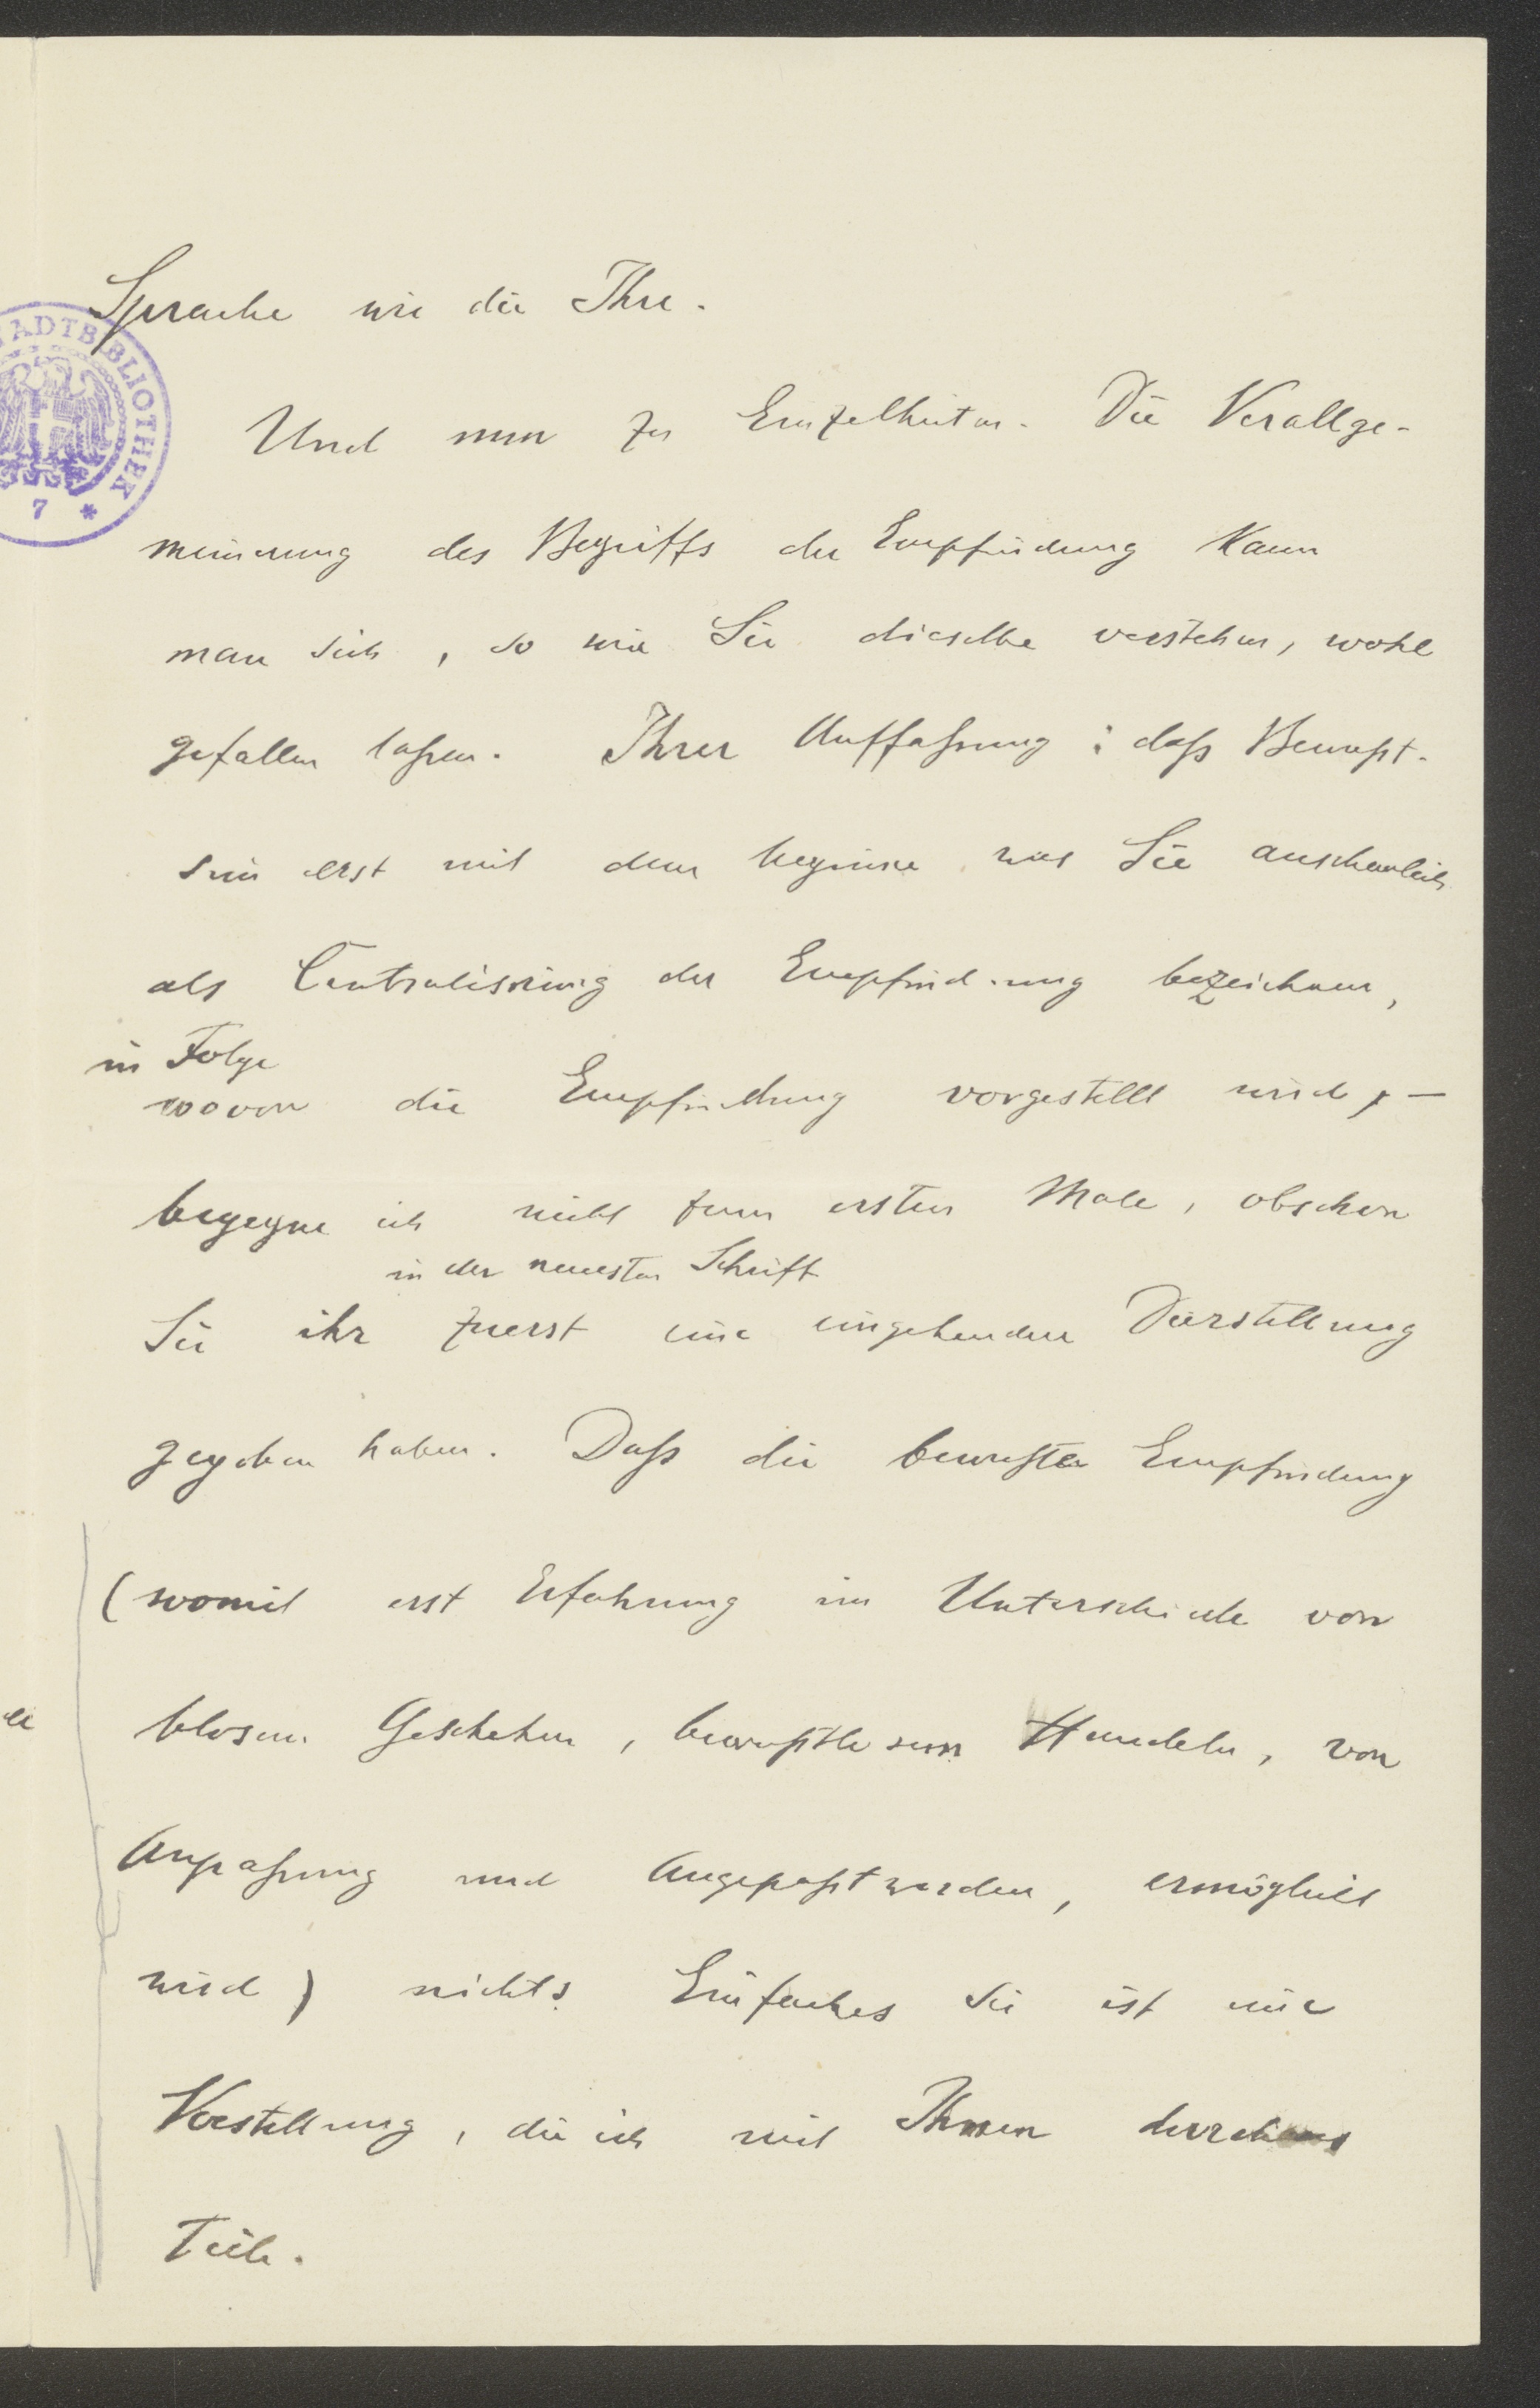 Sprache wie die Ihre.
STADTBIBLIOTHEK
7 *
Und nun zu Einzelheiten. Die Verallge-
meinerung des Begriffs der Empfindung kann
man sich, so wie Sie dieselbe verstehen, wohl
gefallen laßen. Ihrer Auffaßung: daß Bewußt-
sein erst mit dem beginne was Sie anschaulich
als Centralisirung der Empfindung bezeichnen,
in Folge
wovon die Empfindung vorgestellt wird, –
begegne ich nicht zum ersten Male, obschon
in der neuesten Schrift
Sie ihr zuerst eine eingehendere Darstellung
gegeben haben. Daß die bewußte Empfindung
(womit erst Erfahrung im Unterschiede von
blosem Geschehen, bewußtlosem Handeln, von
Anpaßung und Angepaßtwerden, ermöglicht
wird) nichts Einfaches sie ist eine
Vorstellung, die ich mit Ihnen durchaus
Teile.